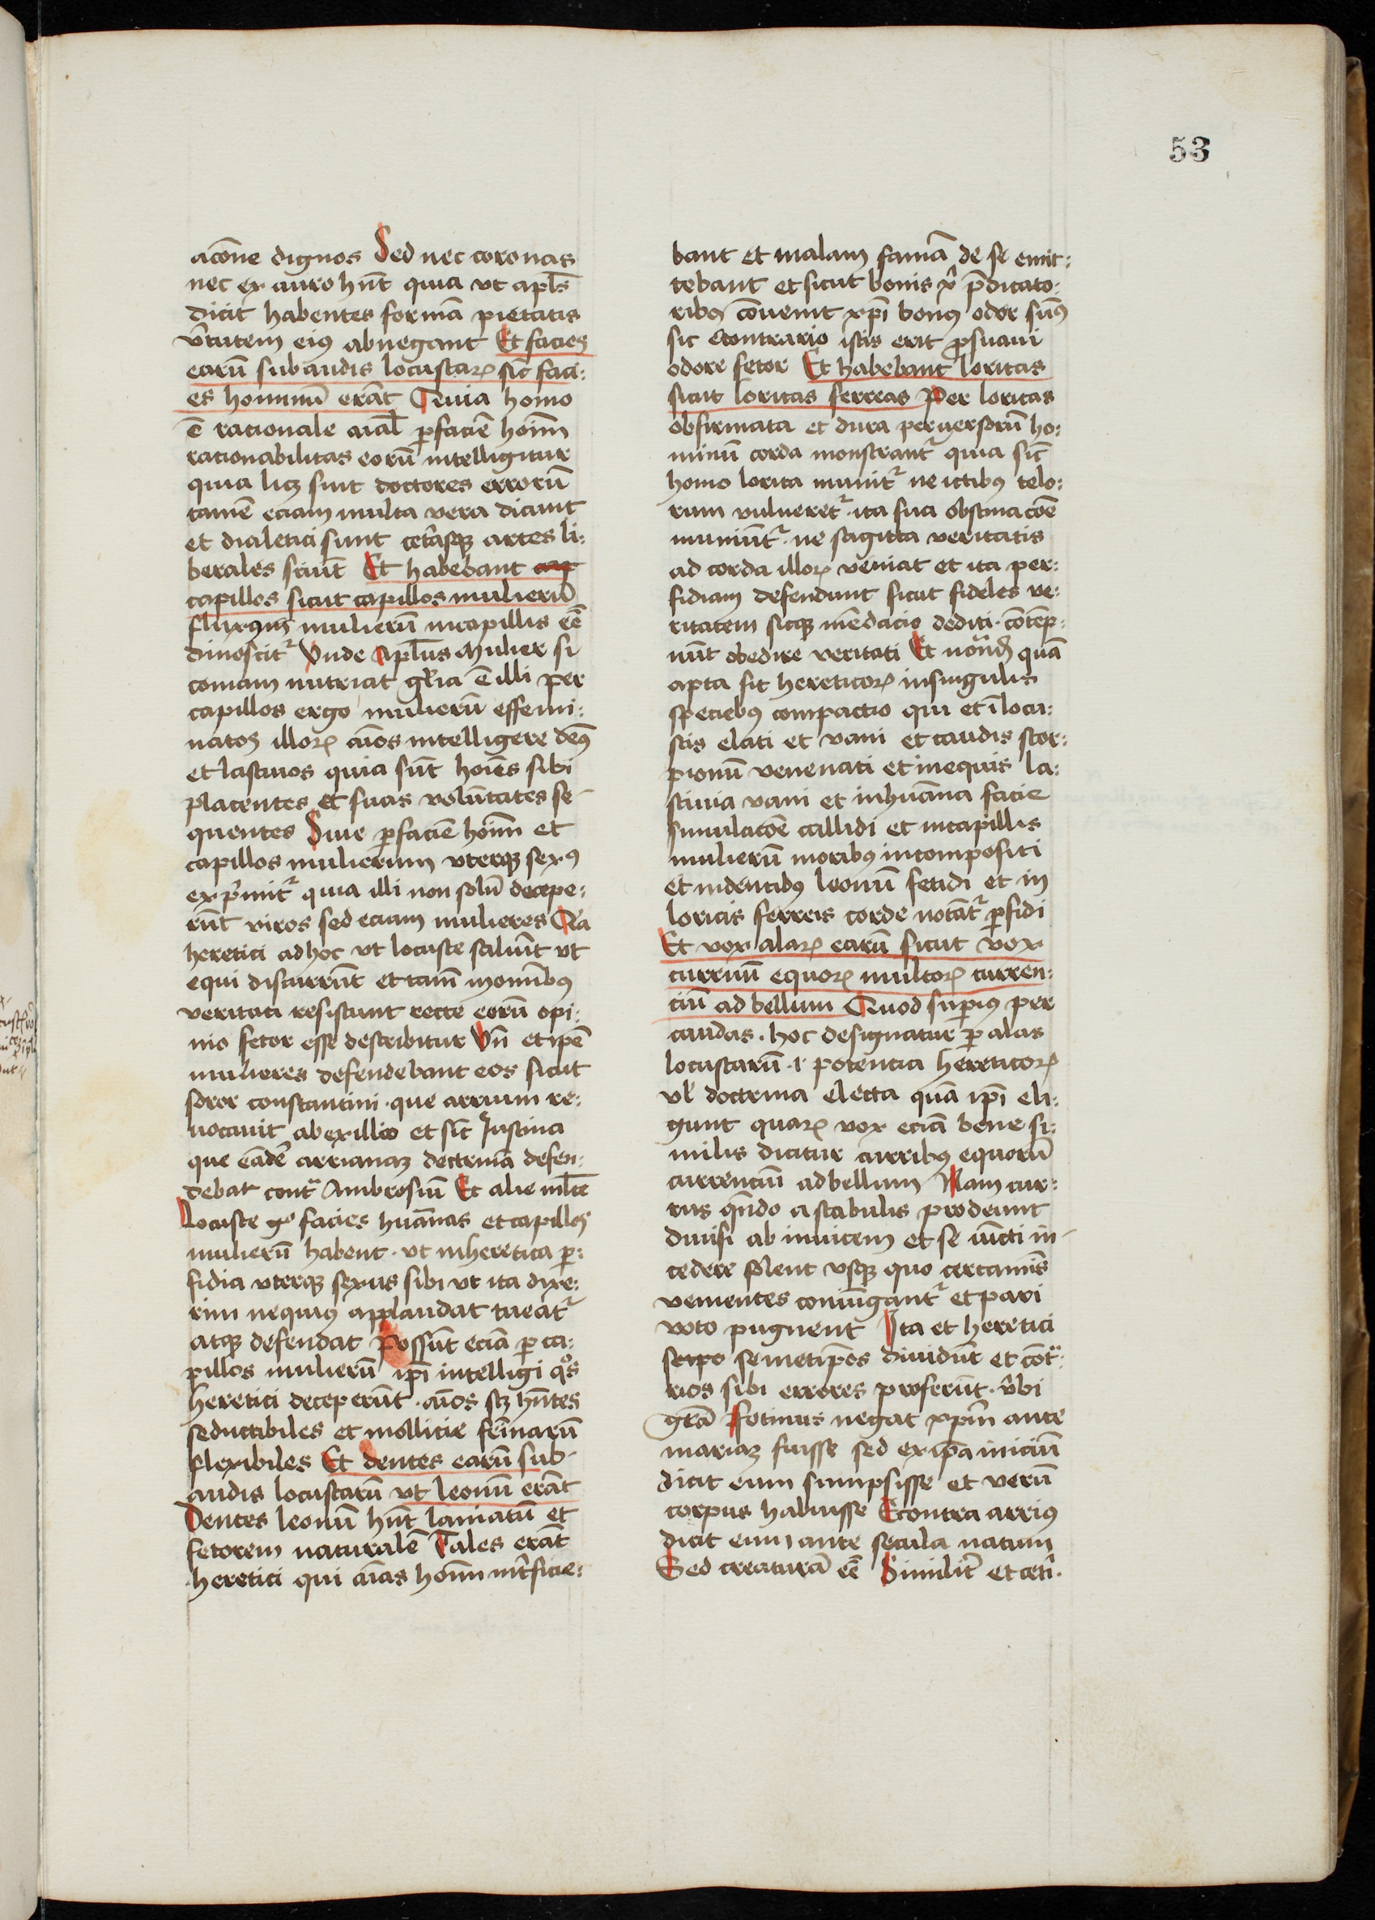 53
acōne dignos Sed nec coronas
nec ex auro hn̄t quia ut apl̄s
dicit habentes formā pietatis
v̓tutem eiꝰ abnegant Et facies
earū subaudis locustarꝝ sic̄ faci:
es hominū erāt Quia homo
ē racionale aīal ꝑ faciē hoīm
racionabilitas eorū intelligitur
quia licꝫ sint doctores errorū
tamē eciam multa vera dicunt
et dialetici sunt cet̓asqꝫ artes li:
berales sciūt Et habebant cap
capillos sicut capillos mulierū
fluxum mulierū in capillis eē
dinoscit᷑ Unde Apl̄us Mulier si
comam nutriat gl̄ia ē illi per
capillos ergo mulierū effemi:
natos illorꝝ aīos intelligere demꝰ
et lasciuos quia sūt hoīes sibi
placentes et suas volūtates se-
quentes Siue ꝑ faciē hoīm et
capillos mulierum uterqꝫ sexꝰ
exp̓mit᷑ quia illi non solū decepe:
rūt viros sed eciam mulieres Qia
heretici ad hoc ut locuste saliūt ut
equi discurrūt et tam̄ in omībꝰ
veritati resistunt recte eorū opi:
nio fetor esse describitur Un̄ et ipē
mulieres defendebant eos sicut
soror constantini · que arrium re:
uocauit ab exilio et sic̄ Justina
que eādē arrianaꝫ doctrinā defen:
debat contᷓ Ambrosiū Et alie ml̄te
Locuste gͦ facies huānas et capillos
mulierū habent · ut in heretica ꝑ:
fidia uterqꝫ sexus sibi ut ita dixe:
rim nequiꝰ applaudat tueat᷑
atqꝫ defendat Possūt eciā ꝑ ca:
pillos mulierū ip̄i intelligi qͦs
heretici deceperūt · aīos scꝫ hn̄tes
seductibiles et mollicie feīnarū
flexibiles Et dentes earū sub-
audis locustarū ut leonū erāt
Dentes leonū hn̄t laniatū et
fetorem naturalē Tales erāt
heretici qui aīas hoīm int̓ficie:
bant et malam famā de se emit:
tebant et sicut bonis xp̄i p̄dicato:
ribꝰ cōuenit xp̄i bonꝰ odor sumꝰ
sic econtrario istis erit pro suaui
odore fetor Et habebant loricas
sicut loricas ferreas Per loricas
obfirmata et dura peruersorū ho:
minū corda monstrant᷑ quia sic̄
homo lorica munit᷑ ne ictibus telo:
rum vulneret᷑ · ita sua obstinacōe
muniūt᷑ · ne sagitta veritatis
ad corda illorꝝ veniat et ita per:
fidiam defendunt sicut fideles ve:
ritatem sicqꝫ mēdacio dediti · cōtēp-
nūt obedire veritati Et notand̄ quā
apta sit hereticorꝝ in singulis
speciebꝰ compactio qui et ī locu:
stis elati et vani et caudis scor:
pionū venenati et in equis la:
sciuia vani et in huāna facie
simulacōe callidi et in capillis
mulierū moribꝰ incompositi
et in dentibꝰ leonū fetidi et in
loricis ferreis corde notāt᷑ ꝑfidi
Et vox alarꝝ earū sicut vox
curruū equorꝝ multorꝝ curren:
ciū ad bellum Quod supiꝰ per
caudas · hoc designatur ꝑ alas
locustarū · i · potencia hereticorꝝ
ul̓ doctrina electa quā ip̄i eli:
gunt quarꝝ vox eciā bene si:
milis dicitur curribꝰ equorū
currenciū ad bellum Nam cur:
rus qn̄do a stabulis prodeunt
diuisi ab inuicem et se iūcti in-
cedere solent usqꝫ quo certamīs
vementes coniūgant᷑ et pari
voto pugnent Ita et heretici
semetip̄os diuidūt et cōtᷓ:
rios sibi errores proferūt · v̓bi
grā Fotinus negat xp̄m ante
mariaꝫ fuisse sed ex ip̄a iniciū
dicit eum sumpsisse et verū
corpus habuisse Econtra arriꝰ
dicit eum ante secula natum
Sed creaturā eē Similit̓ et cet̓i ·